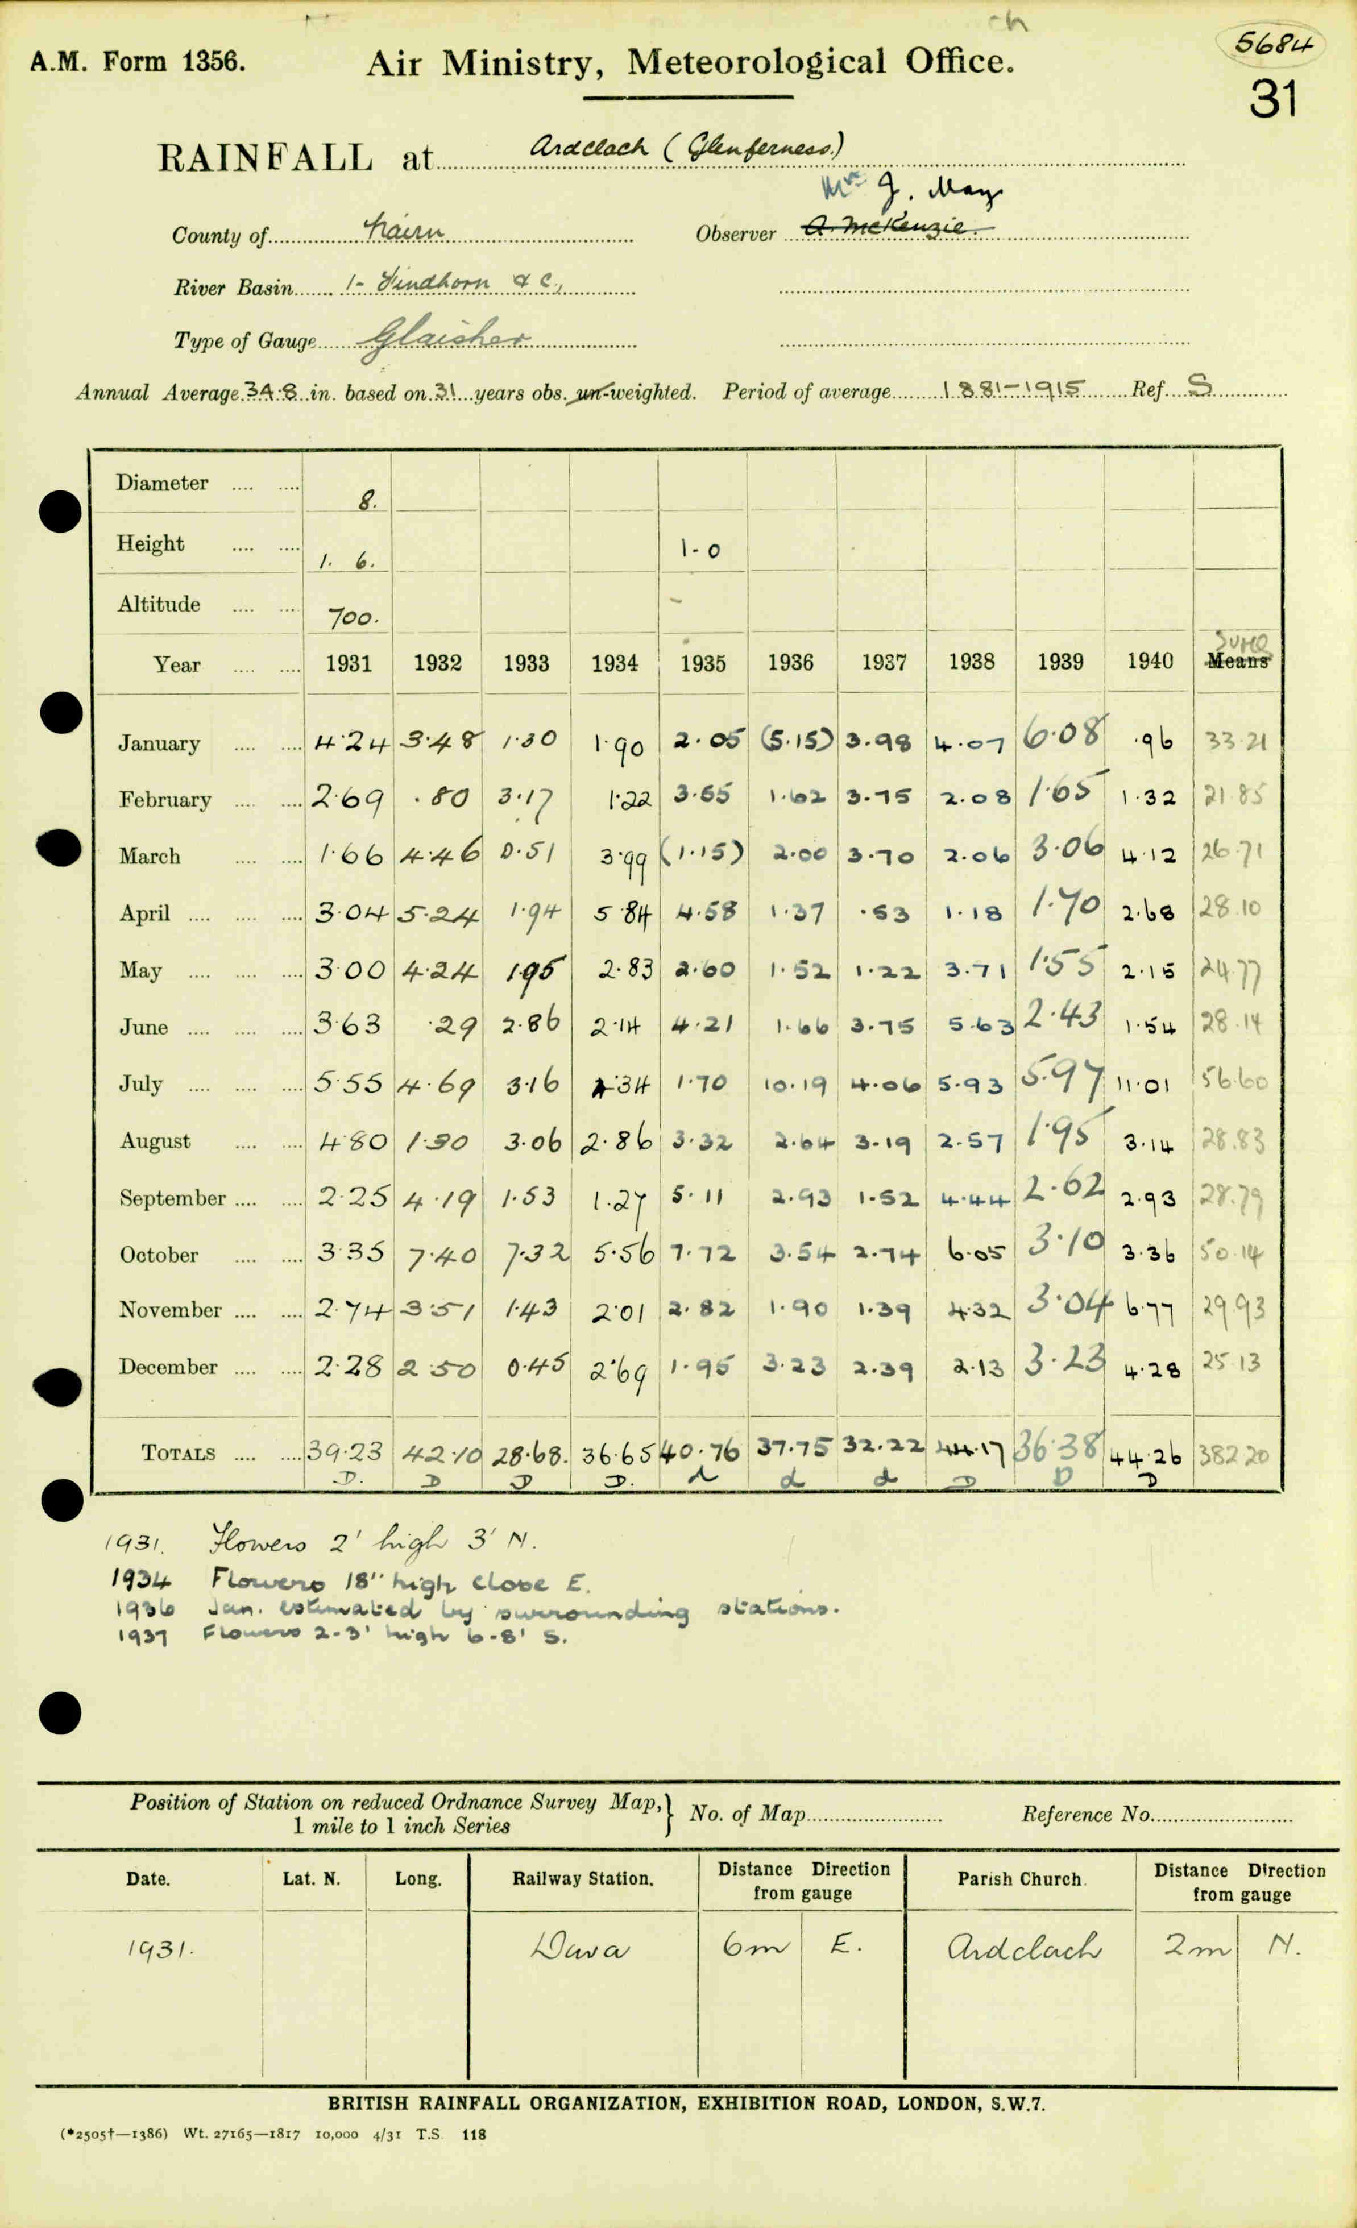 ch
A.M. Form 1356. Air Ministry, Meteorological Office. 5684
31
RAINFALL at Ardclach (Glenferness.)
Mrs J. May
County of Nairn Observer A. McKenzie.
River Basin 1- Findhorn & C.,
Type of Gauge Glaisher
Annual Average 34.8 in. based on 31 years obs. un-weighted. Period of average 1881-1915 Ref. S
Diameter .... .... 8.
Height .... .... 1. 6. 1-0
Altitude .... .... 700. -
Sums
Year .... .... 1931 1932 1933 1934 1935 1936 1937 1938 1939 1940 Means
January .... .... 4.24 3.48 1.30 1.90 2.05 (5.15) 3.98 4.07 6.08 .96 33.21
February .... .... 2.69 .80 3.17 1.22 3.55 1.62 3.75 2.08 1.65 1.32 21.85
March .... .... 1.66 4.46 0.51 3.99 (1.15) 2.00 3.70 2.06 3.06 4.12 26.71
April .... .... .... 3.04 5.24 1.94 5.84 4.58 1.37 .53 1.18 1.70 2.68 28.10
May .... .... .... 3.00 4.24 1.95 2.83 2.60 1.52 1.22 3.71 1.55 2.15 24.77
June .... .... .... 3.63 .29 2.86 2.14 4.21 1.66 3.75 5.63 2.43 1.54 28.14
July .... .... .... 5.55 4.69 3.16 4.34 1.70 10.19 4.06 5.93 5.97 11.01 56.60
August .... .... 4.80 1.30 3.06 2.86 3.32 2.64 3.19 2.57 1.95 3.14 28.83
September .... .... 2.25 4.19 1.53 1.27 5.11 2.93 1.52 4.44 2.62 2.93 28.79
October .... .... 3.35 7.40 7.32 5.56 7.72 3.54 2.74 6.05 3.10 3.36 50.14
November .... .... 2.74 3.51 1.43 2.01 2.82 1.90 1.39 4.32 3.04 6.77 29.93
December .... .... 2.28 2.50 0.45 2.69 1.95 3.23 2.39 2.13 3.23 4.28 25.13
TOTALS .... .... 39.23 42.10 28.68. 36.65 40.76 37.75 32.22 44.17 36.38 44.26 382.20
D. D D D. d d d D D D
1931. Flowers 2' high 3' N.
1934 Flowers 18" high close E.
1936 Jan. estimated by surrounding stations.
1937 Flowers 2-3' high 6-8' S.
Position of Station on reduced Ordnance Survey Map,} No. of Map Reference No.
1 mile to 1 inch Series
Date. Lat. N. Long. Railway Station. Distance Direction from gauge Parish Church. Distance Direction from gauge
1931. Dava 6m E. Ardclach 2m N.
BRITISH RAINFALL ORGANIZATION, EXHIBITION ROAD, LONDON, S.W.7.
(*2505†—1386) Wt. 27165—1817 10,000 4/31 T.S. 118